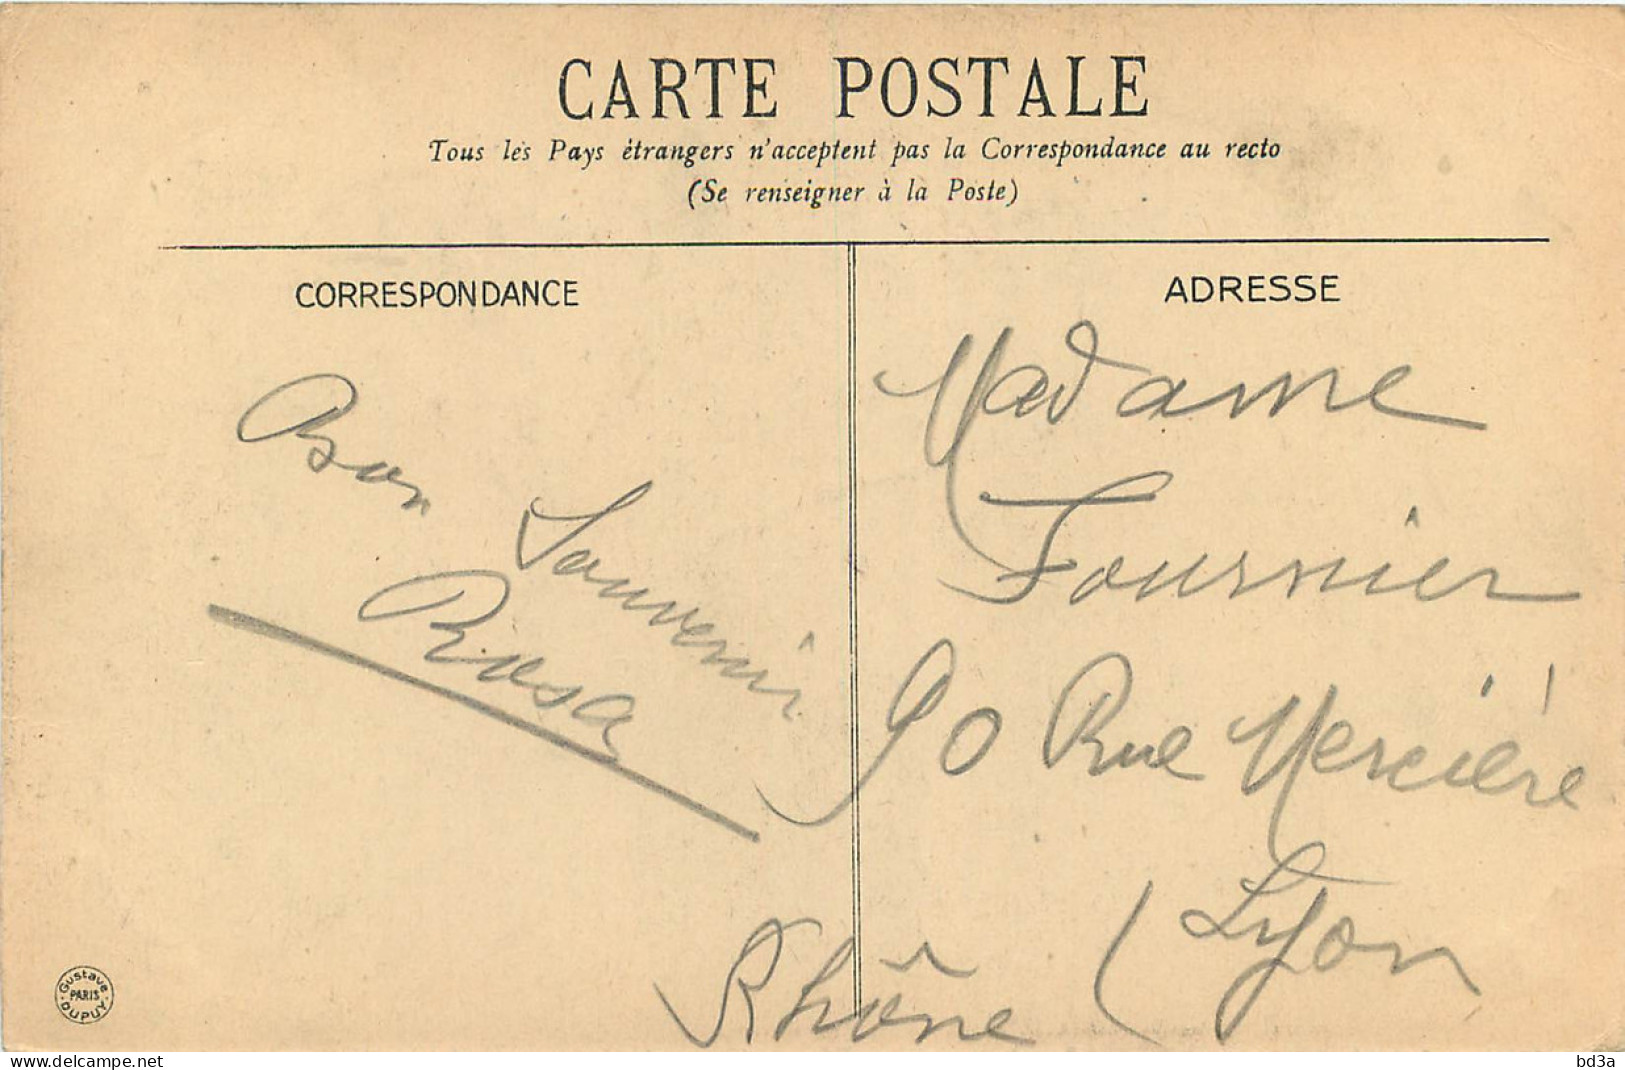 CARTE POSTALE
Tous les Pays étrangers n'acceptent pas la Correspondance au recto
(Se renseigner à la Poste)
CORRESPONDANCE
Bon
Souvenir
Rosa
ADRESSE
Madame
Fournier
90 Rue Mercière
Lyon
Rhône
Gustave
PARIS
DUPUY
www.delcampe.net
bd3a